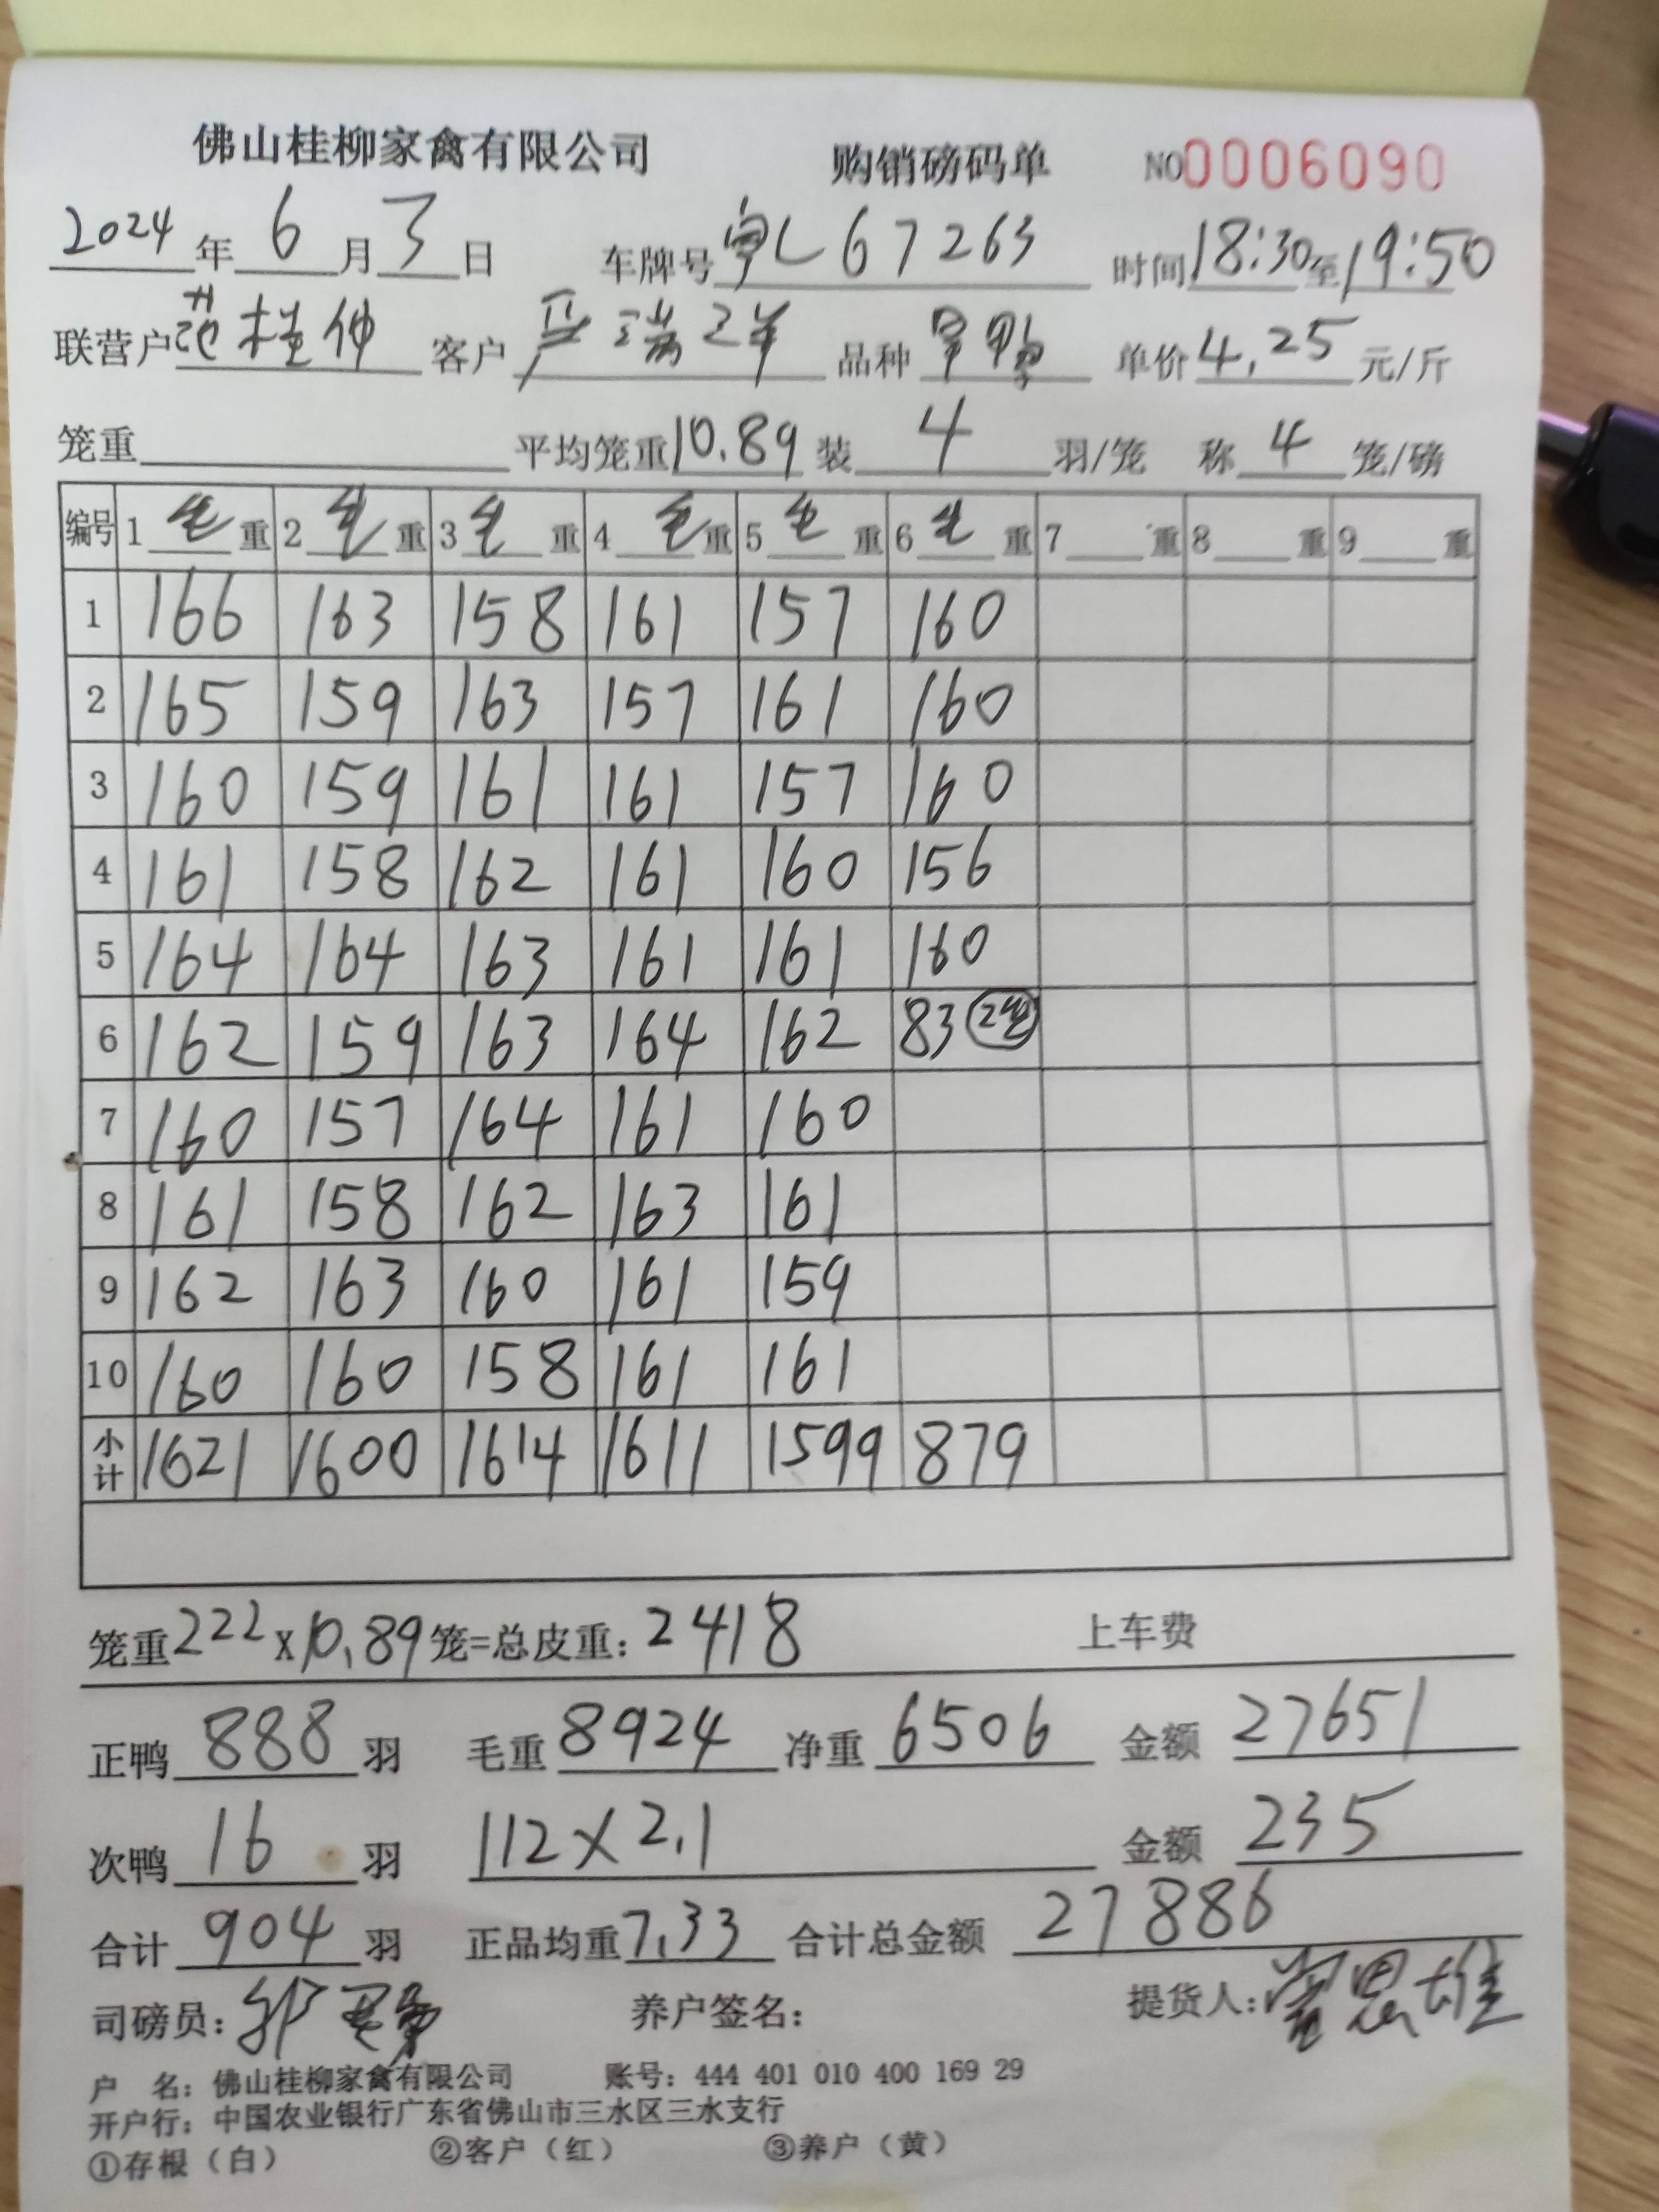 佛山桂柳家禽有限公司 购销磅码单 NO0006090
2024年6月3日 车牌号粤L67263 时间18:30至19:50
联营户范桂仲 客户严瑞祥 品种旱鸭 单价4.25元/斤
笼重 平均笼重10.89装4羽/笼 称4笼/磅
编号 1毛重 2毛重 3毛重 4毛重 5毛重 6毛重 7重 8重 9重
1 166 163 158 161 157 160
2 165 159 163 157 161 160
3 160 159 161 161 157 160
4 161 158 162 161 160 156
5 164 164 163 161 161 160
6 162 159 163 164 162 83
7 160 157 164 161 160
8 161 158 162 163 161
9 162 163 160 161 159
10 160 160 158 161 161
小计 1621 1600 1614 1611 1599 879
笼重222x10.89笼=总皮重:2418 上车费
正鸭888羽 毛重8924净重6506 金额27651
次鸭16羽 112×2.1 金额235
合计904羽 正品均重7.33 合计总金额27886
司磅员: 养户签名: 提货人:
户 名:佛山桂柳家禽有限公司 账号:444 401 010 400 169 29
开户行:中国农业银行广东省佛山市三水区三水支行
①存根(白) ②客户(红) ③养户(黄)